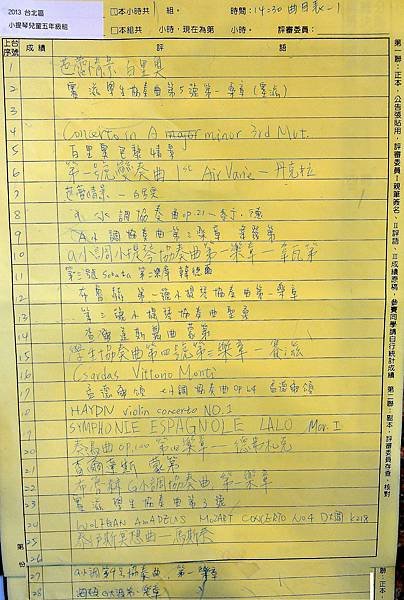 2013 台北區
小提琴兒童五年級組
□本小時共1組。 時間:14:30 曲目表-1
□本組共 小時,現在為第 小時。 評審委員:
上台序號 成績 評語
1 芭蕾情景 白里奧
2 賽滋 學生協奏曲第5號第一樂章(賽滋)
3
4 Concerto in A minor 3rd Mut.
5 百里奧 芭蕾情景
6 第一號變奏曲 1st Air Varie - 丹克拉
7 芭蕾情景 - 白里奧
8 a小調協奏曲op.21-
9 A小調協奏曲第三樂章 韋
10 a小調小提琴協奏曲第一樂章-韋瓦第
11 第三號 Sonata 第二樂章 韓德爾
12 布魯赫 第一號小提琴協奏曲第一樂章
13 第三號小提琴協奏曲聖桑
14 查爾達斯舞曲 蒙第
15 學生協奏曲第四號第三樂章-賽滋
16 Csardas Vittorio Monti
17 孟德爾頌 小調協奏曲op.64 孟德爾頌
18 HAYDN violin concerto NO.1
19 SYMPHONIE ESPAGNOLE LALO Mov.I
20 奏鳴曲op.100第四樂章-德弗札克
21 查爾達斯 蒙第
22 布魯赫G小調協奏曲 第一樂章
23 賽滋 學生協奏曲第3號
24 WOLFGAN AMADEUS MOZART CONCERTO NO.4 D大調 K218
25 泰伊斯冥想曲-馬斯奈
26
27 a小調第 協奏曲 第一樂章
28 G大調 樂章
第 份
第一聯:正本,公告張貼用,評審委員Ⅰ親筆簽名、Ⅱ評語、Ⅲ成績原稿,參賽同學請自行統計成績 第二聯:副本,評審委員存查、核對
第一聯:正本